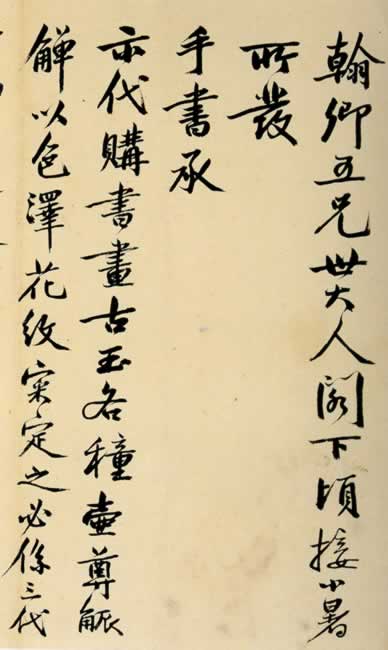 翰卿五兄世大人閣下頃接小暑
所發
手書承
示代購書畫古玉各種壷尊觚
觶以色澤花紋寀定之必係三代